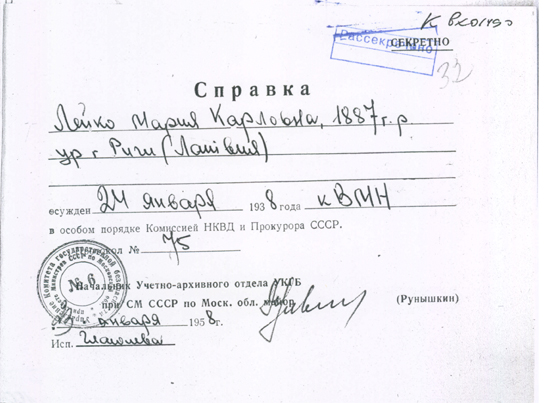 К вход
Рассекречено
СЕКРЕТНО
32
Справка
Лейко Мария Карловна, 1887 г. р.
ур г Риги (Латвия)
осужден 24 января 1938 года к ВМН
в особом порядке Комиссией НКВД и Прокурора СССР.
протокол № 75
№ 6
Начальник Учетно-архивного отдела УКГБ
при СМ СССР по Моск. обл. майор
(Рунышкин)
января 1958 г.
Исп.